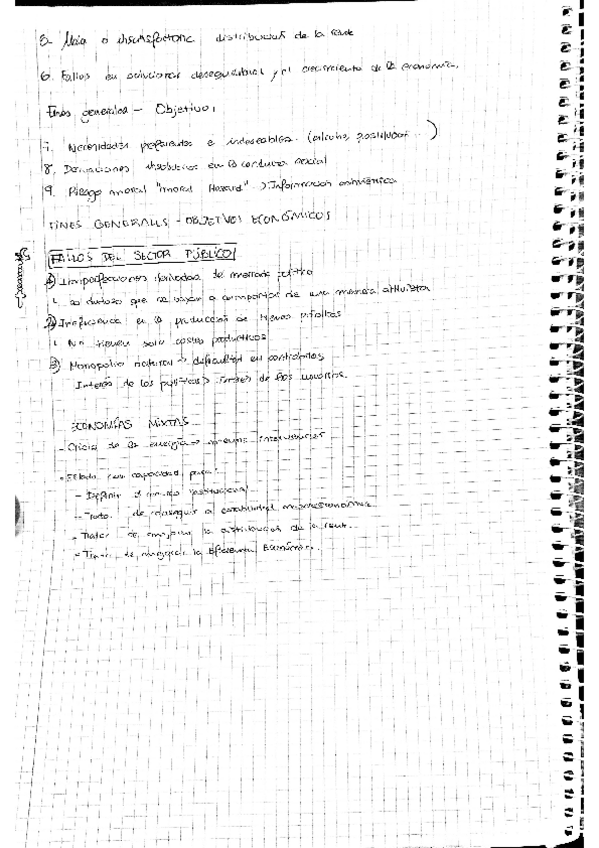 5. Mala o insatisfactoria distribución de la renta
6. Fallos en solucionar desequilibrios y el crecimiento de la economía.
Fines generales - Objetivos
7. Necesidades preferentes e indeseables. (alcohol, prostitución ...)
8. Desviaciones en la conducta social
9. Riesgo moral "moral Hazard" → Información asimétrica
FINES GENERALES - OBJETIVOS ECONÓMICOS
FALLOS DEL SECTOR PÚBLICO
1) Imperfecciones derivadas de mercado político
↳ es dudoso que se vayan a comportar de una manera altruista
2) Ineficiencia en la producción de bienes públicos
↳ No tienen solo costes productivos
3) Monopolio natural → dificultad en controlarlos
Interés de los políticos > interés de los usuarios.
ECONOMÍAS MIXTAS
- Crisis de la energía →
- Estado con capacidad para:
- Definir el marco institucional
- Tratar de conseguir la estabilidad macroeconómica
- Tratar de mejorar la distribución de la renta.
- Tratar de mejorar la Eficiencia Económica.